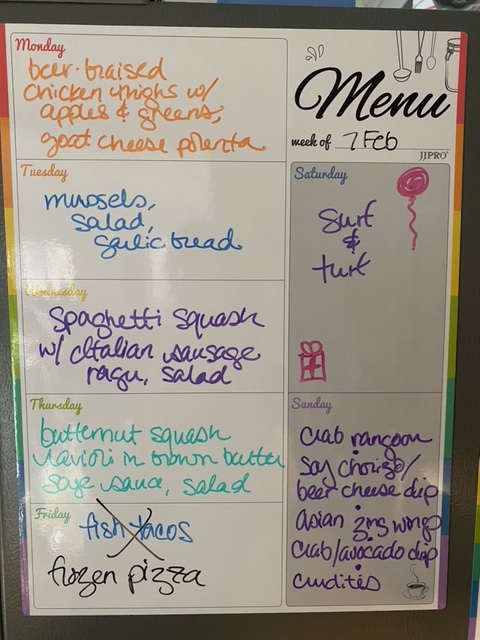 Menu
week of 7 Feb
JJPRO
Monday
beer-braised
chicken thighs w/
apples & greens,
goat cheese polenta
Tuesday
mussels,
salad,
garlic bread
Wednesday
Spaghetti squash
w/ Italian sausage
ragu, salad
Thursday
butternut squash
ravioli in brown butter
sage sauce, salad
Friday
fish tacos
frozen pizza
Saturday
surf
&
turf
Sunday
Crab rangoon
Soy chorizo/
beer cheese dip
asian zing wings
Crab/avocado dip
crudités